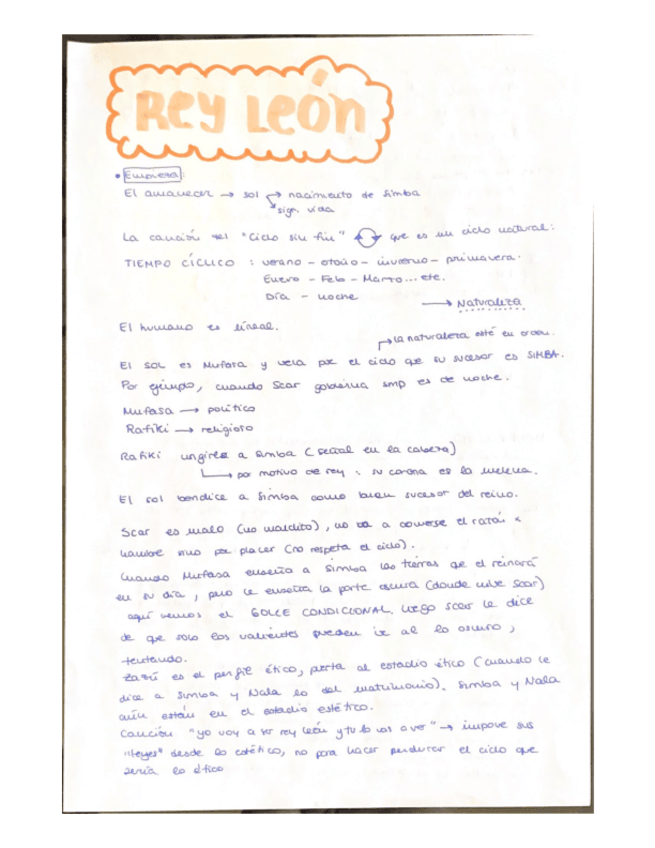 REY LEÓN
• Empieza:
El amanecer → sol → nacimiento de Simba
→ sign. vida
La canción del "Ciclo sin fin" que es un ciclo natural:
TIEMPO CÍCLICO : verano - otoño - invierno - primavera.
Enero - Feb - Marzo... etc.
Día - noche
→ Naturaleza
El humano es lineal.
→ la naturaleza está en orden.
El SOL es Mufasa y vela por el ciclo que su sucesor es SIMBA.
Por ejemplo, cuando Scar gobierna smp es de noche.
Mufasa → político
Rafiki → religioso
Rafiki a Simba (señal en la cabeza)
→ por motivo de rey : su corona es la melena.
El sol bendice a Simba como buen sucesor del reino.
Scar es malo (no maldito), no va a comerse el ratón x
hambre sino por placer (no respeta el ciclo).
Cuando Mufasa enseña a Simba las tierras que el reinará
en su día, pero le enseña la parte oscura (donde vive Scar)
aquí vemos el CONDICIONAL, luego Scar le dice
de que solo los valientes pueden ir al lo oscuro,
tentando.
Zazú es el perfil ético, porta al estadio ético (cuando le
dice a Simba y Nala lo del matrimonio). Simba y Nala
aún están en el estadio estético.
Canción "yo voy a ser rey león y tu lo vas a ver" → impone sus
"leyes" desde lo estético, no para hacer perdurar el ciclo que
sería lo ético